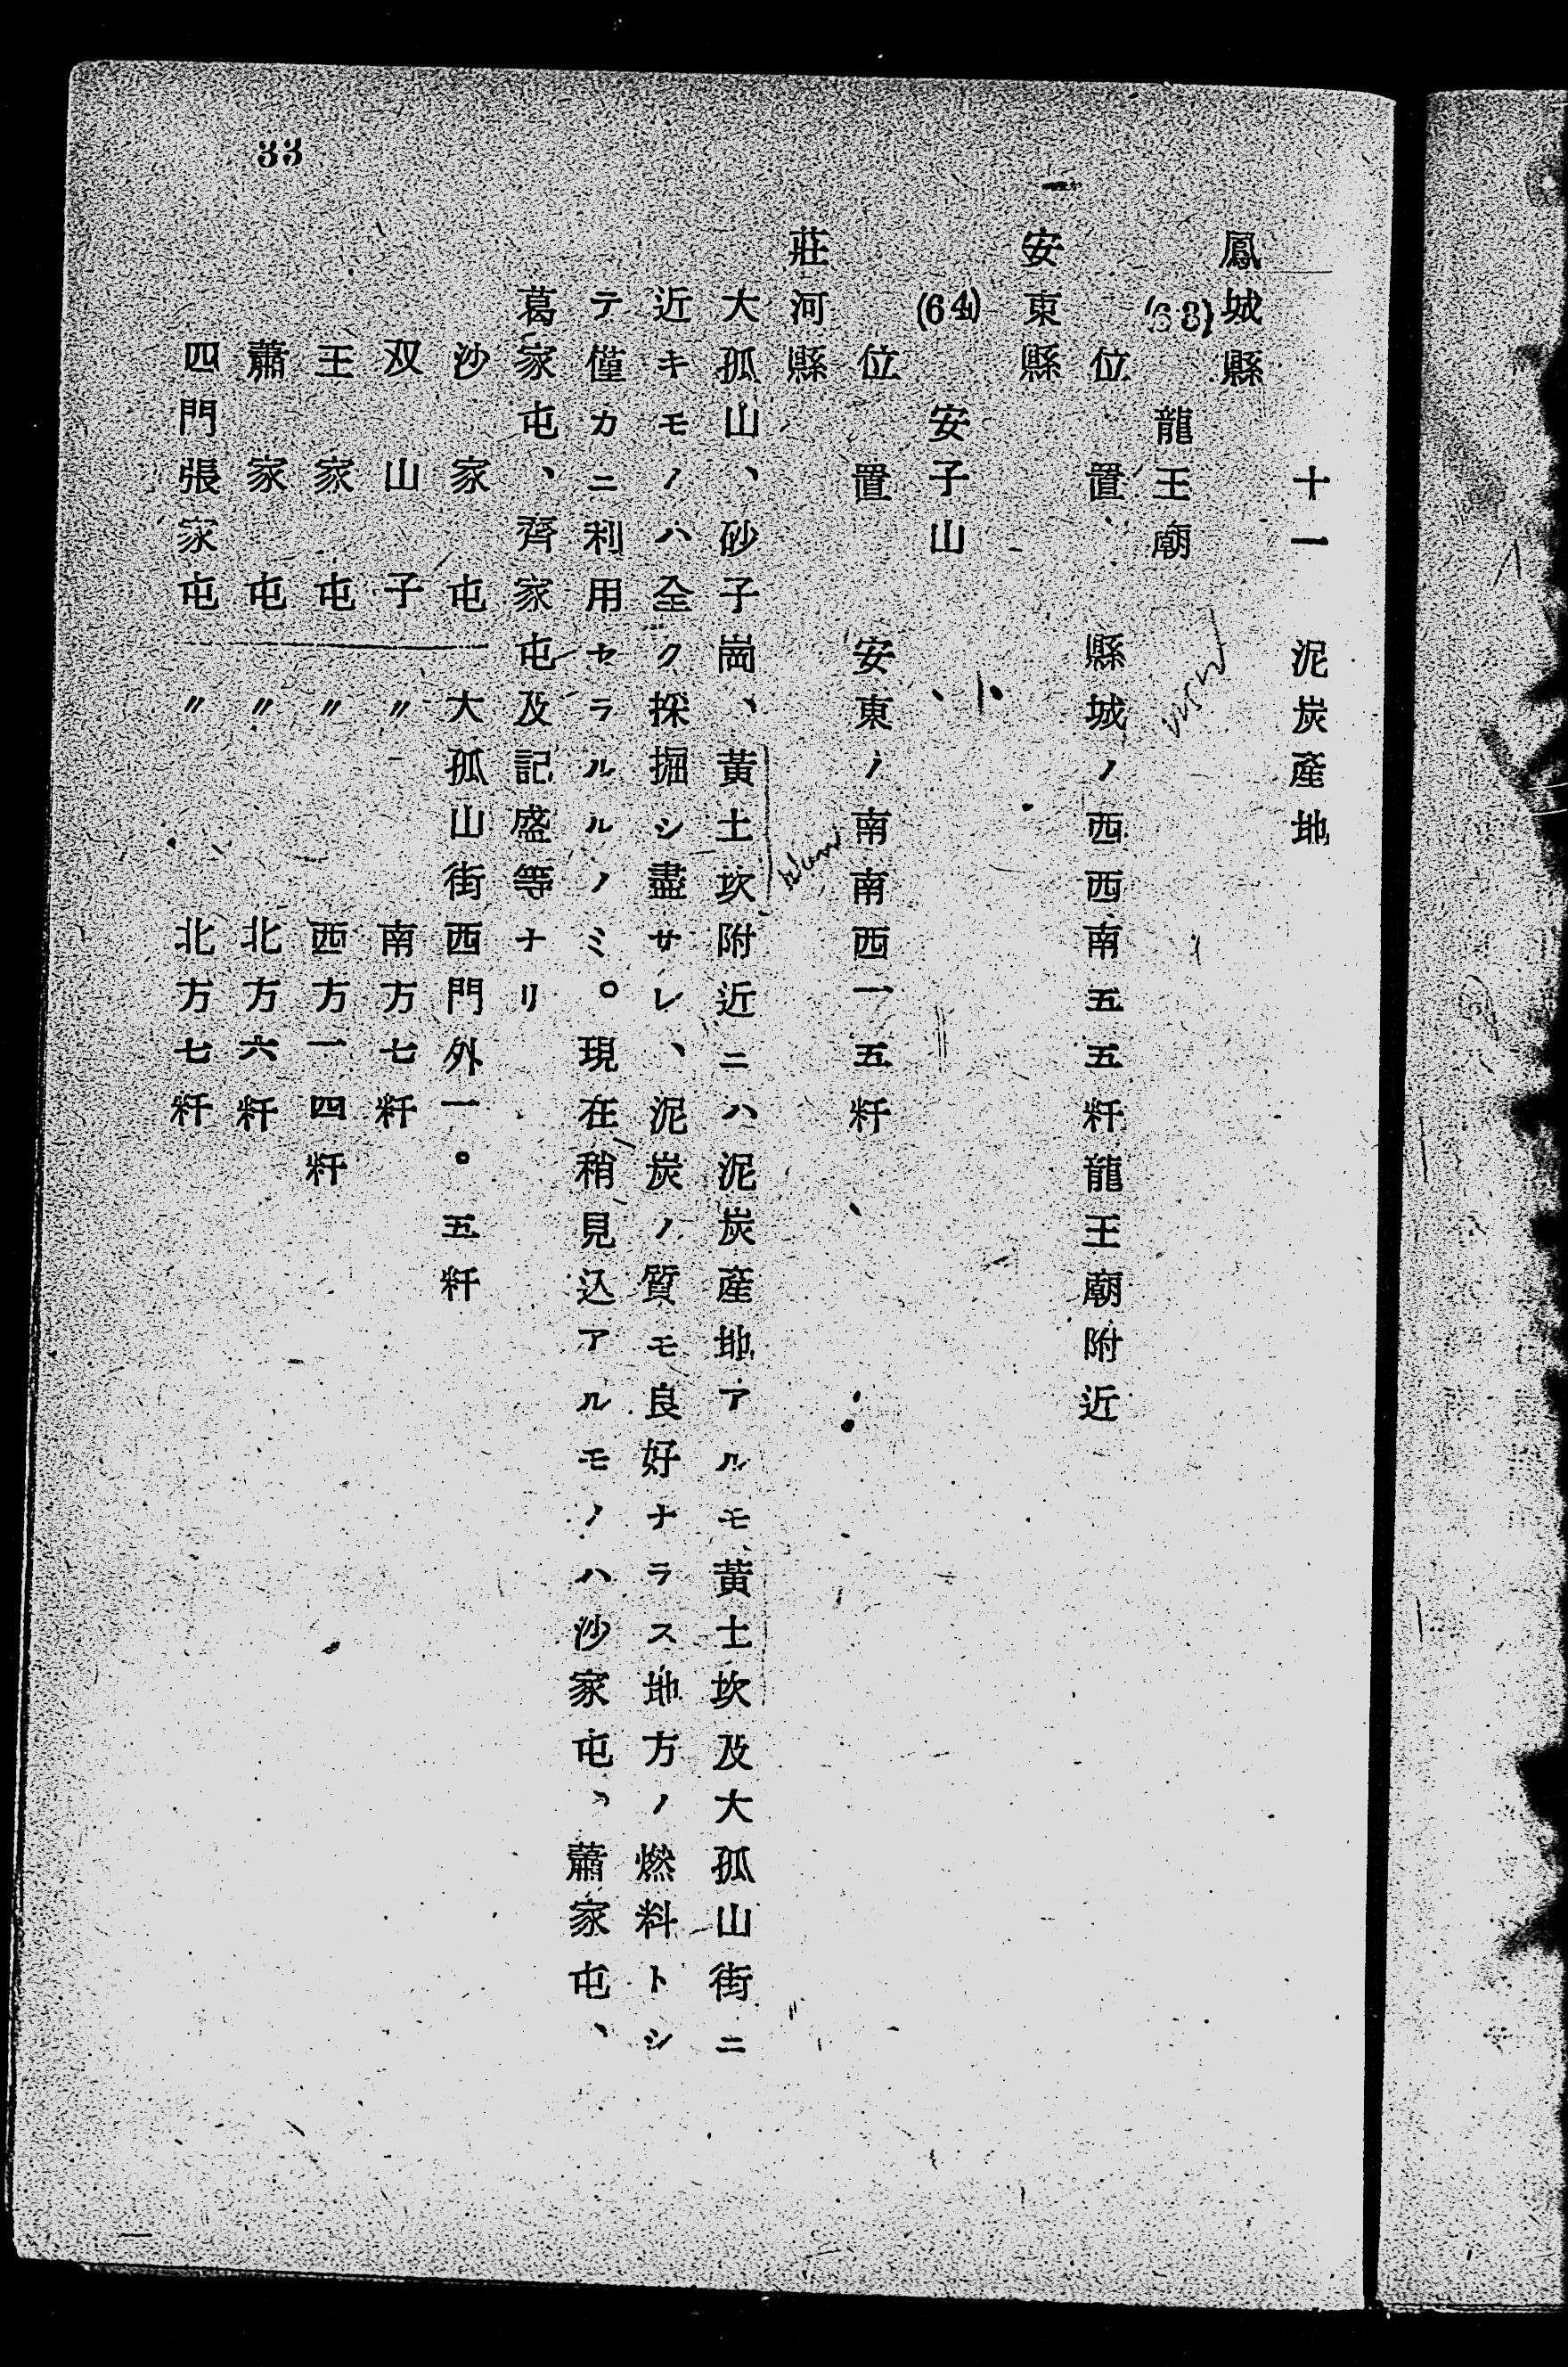 十一　泥炭產地
鳳城縣
(63)　龍王廟
位置　縣城ノ西西南五五粁龍王廟附近
安東縣
(64)　安子山
位置　安東ノ南南西一五粁
莊河縣
大孤山、砂子崗、黃土坎附近ニハ泥炭産地アルモ黃土坎及大孤山街ニ
近キモノハ全ク採掘シ盡サレ、泥炭ノ質モ良好ナラス地方ノ燃料トシ
テ僅カニ利用セラルルノミ。現在稍見込アルモノハ沙家屯、蕭家屯、
葛家屯、齊家屯及記盛等ナリ
沙家屯　大孤山街西門外一。五粁
双山子　〃　南方七粁
王家屯　〃　西方一四粁
蕭家屯　〃　北方六粁
四門張家屯　〃　北方七粁
33